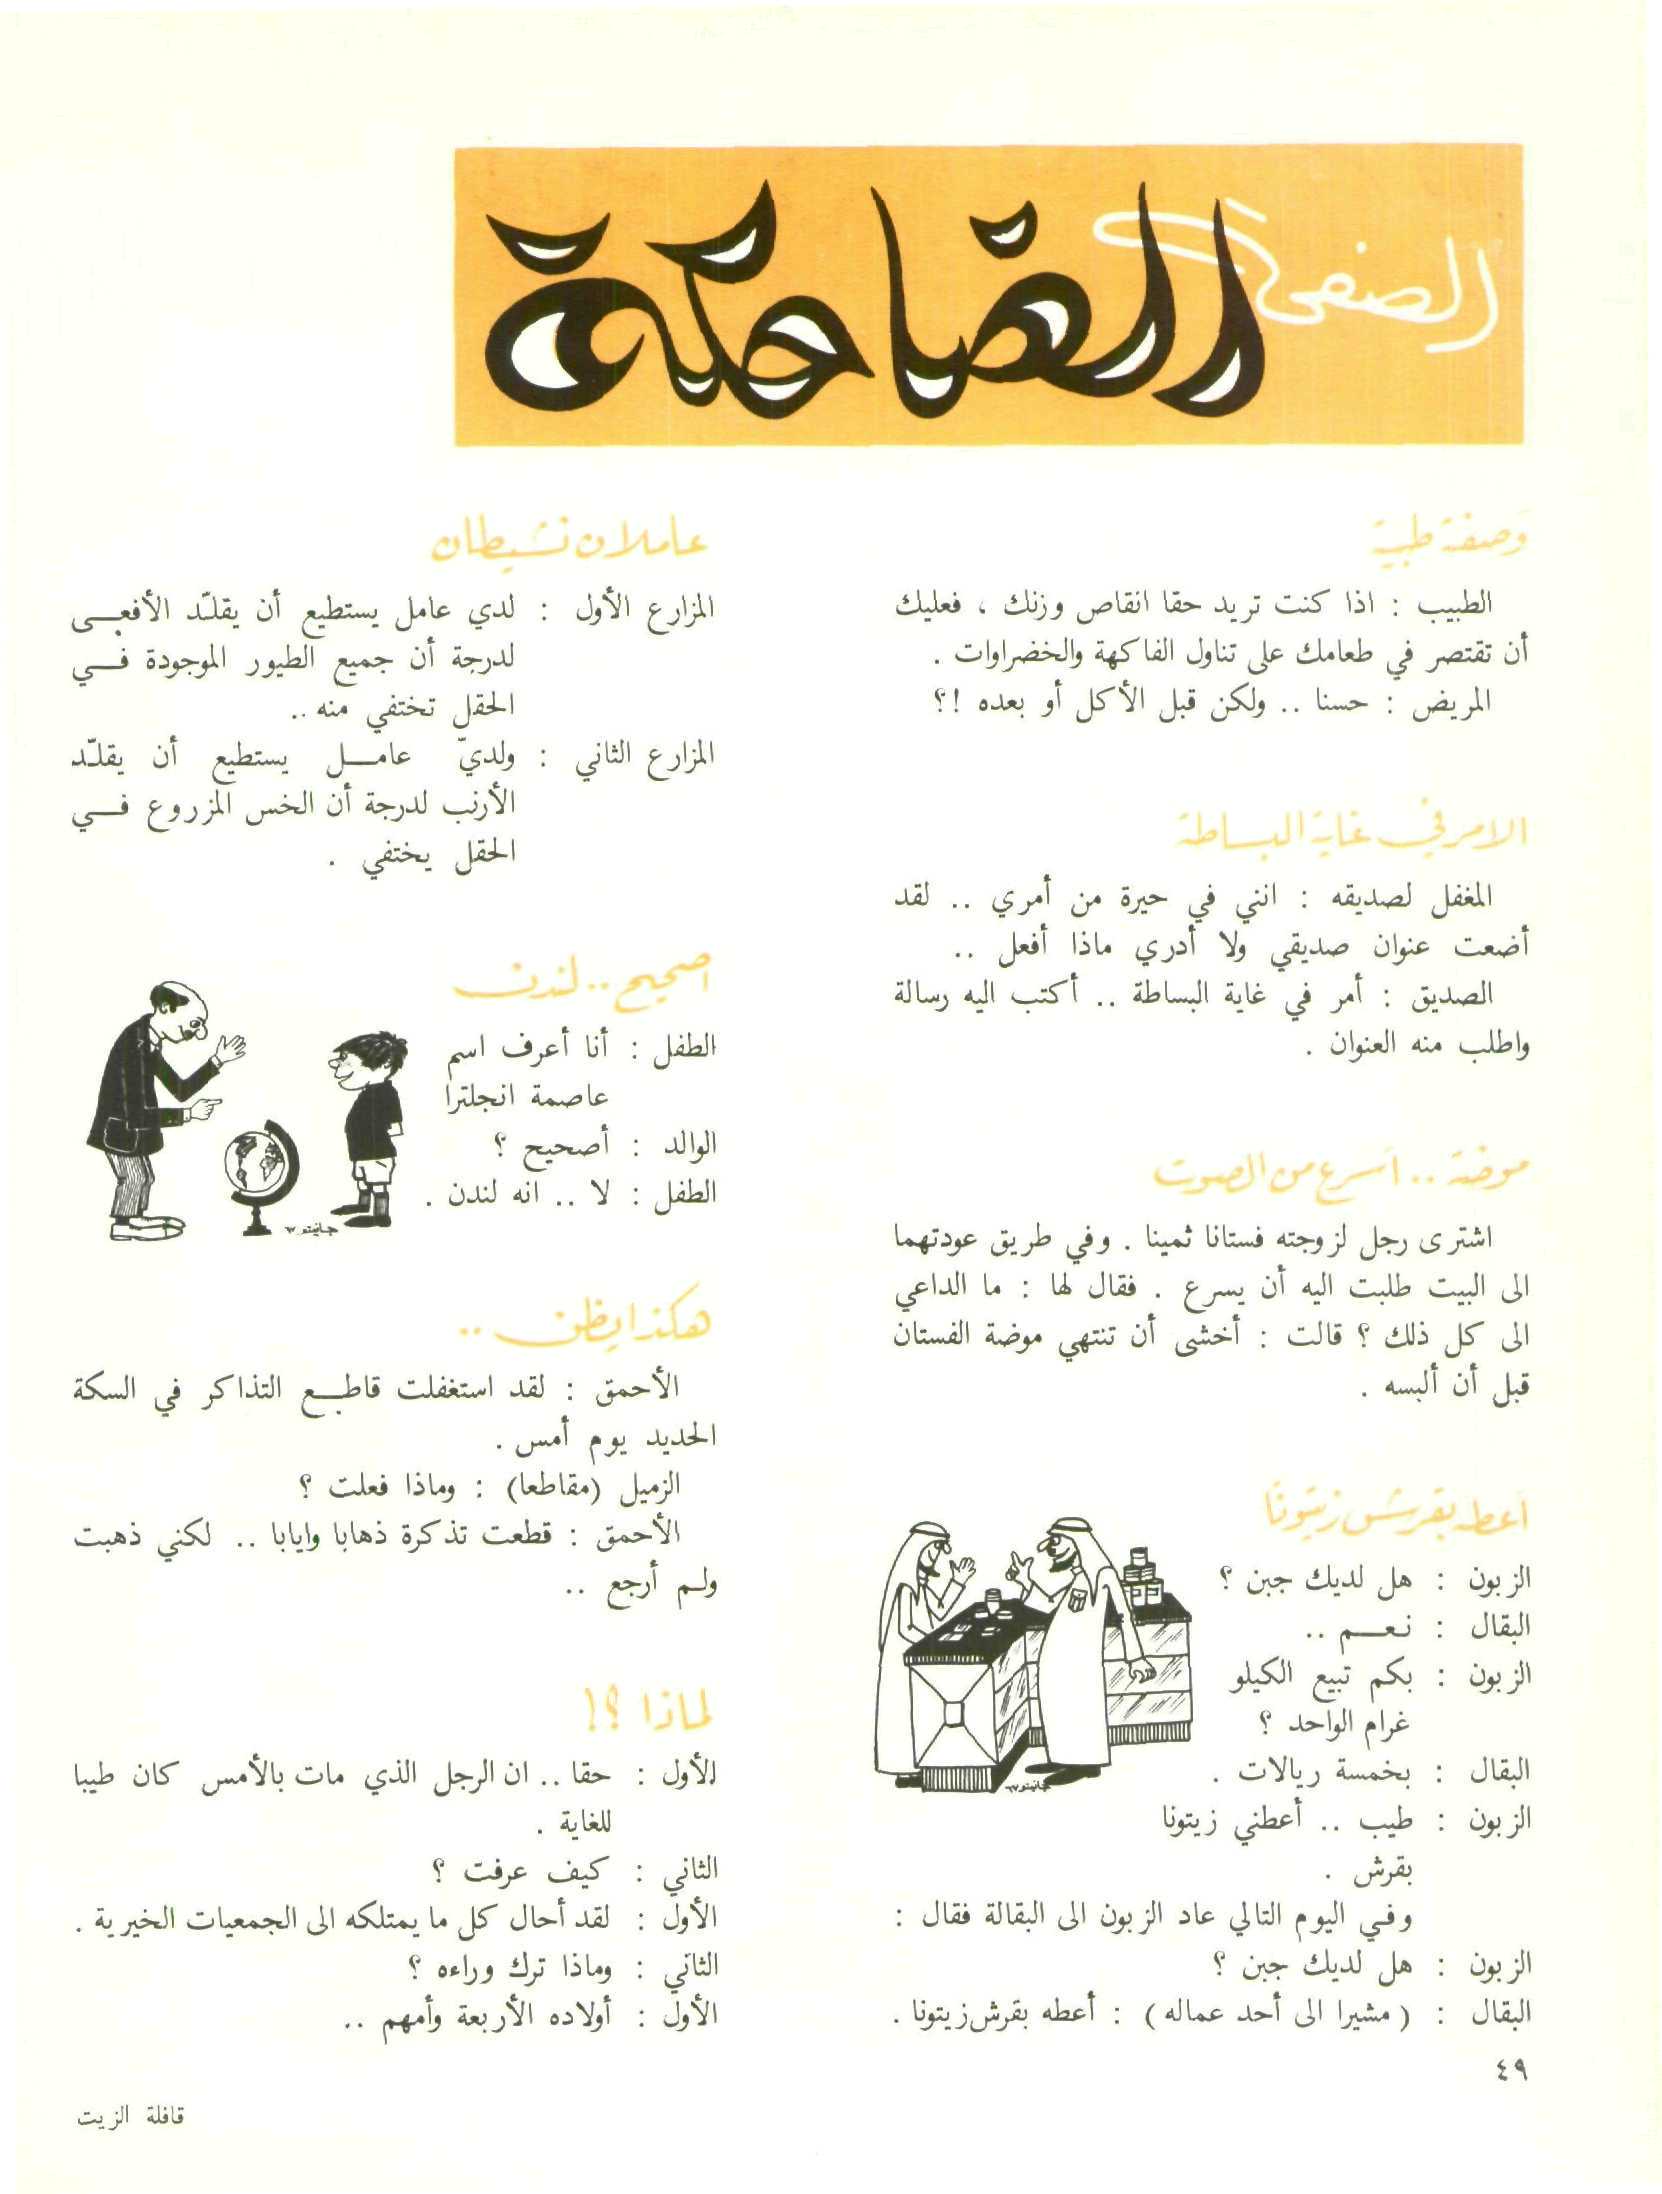 الصفحة الضاحكة
وصفة طبية
الطبيب : اذا كنت تريد حقا انقاص وزنك ، فعليك
أن تقتصر في طعامك على تناول الفاكهة والخضراوات .
المريض : حسنا .. ولكن قبل الأكل أو بعده !؟
الامر في غاية البساطة
المغفل لصديقه : انني في حيرة من أمري .. لقد
أضعت عنوان صديقي ولا أدري ماذا أفعل ..
الصديق : أمر في غاية البساطة .. أكتب اليه رسالة
واطلب منه العنوان .
موضة .. أسرع من الصوت
اشترى رجل لزوجته فستانا ثمينا . وفي طريق عودتهما
الى البيت طلبت اليه أن يسرع . فقال لها : ما الداعي
الى كل ذلك ؟ قالت : أخشى أن تنتهي موضة الفستان
قبل أن ألبسه .
أعطه بقرش زيتونا
الزبون : هل لديك جبن ؟
البقال : نعـــم ..
الزبون : بكم تبيع الكيلو
غرام الواحد ؟
البقال : بخمسة ريالات .
الزبون : طيب .. أعطني زيتونا
بقرش .
وفي اليوم التالي عاد الزبون الى البقالة فقال :
الزبون : هل لديك جبن ؟
البقال : ( مشيرا الى أحد عماله ) : أعطه بقرش زيتونا .
جانيتو ٦٧
٤٩
عاملان نشيطان
المزارع الأول : لدي عامل يستطيع أن يقلّد الأفعــى
لدرجة أن جميع الطيور الموجودة فــي
الحقل تختفي منه ..
المزارع الثاني : ولديّ عامــل يستطيع أن يقلّد
الأرنب لدرجة أن الخس المزروع فــي
الحقل يختفي .
اصحيح .. لندن
الطفل : أنا أعرف اسم
عاصمة انجلترا
الوالد : أصحيح ؟
الطفل : لا .. انه لندن .
جانيتو ٦٧
هكذا يظن ..
الأحمق : لقد استغفلت قاطــع التذاكر في السكة
الحديد يوم أمس .
الزميل (مقاطعا) : وماذا فعلت ؟
الأحمق : قطعت تذكرة ذهابا وايابا .. لكني ذهبت
ولـم أرجع ..
لماذا ؟!
الأول : حقا .. ان الرجل الذي مات بالأمس كان طيبا
للغاية .
الثاني : كيف عرفت ؟
الأول : لقد أحال كل ما يمتلكه الى الجمعيات الخيرية .
الثاني : وماذا ترك وراءه ؟
الأول : أولاده الأربعة وأمهم ..
قافلة الزيت